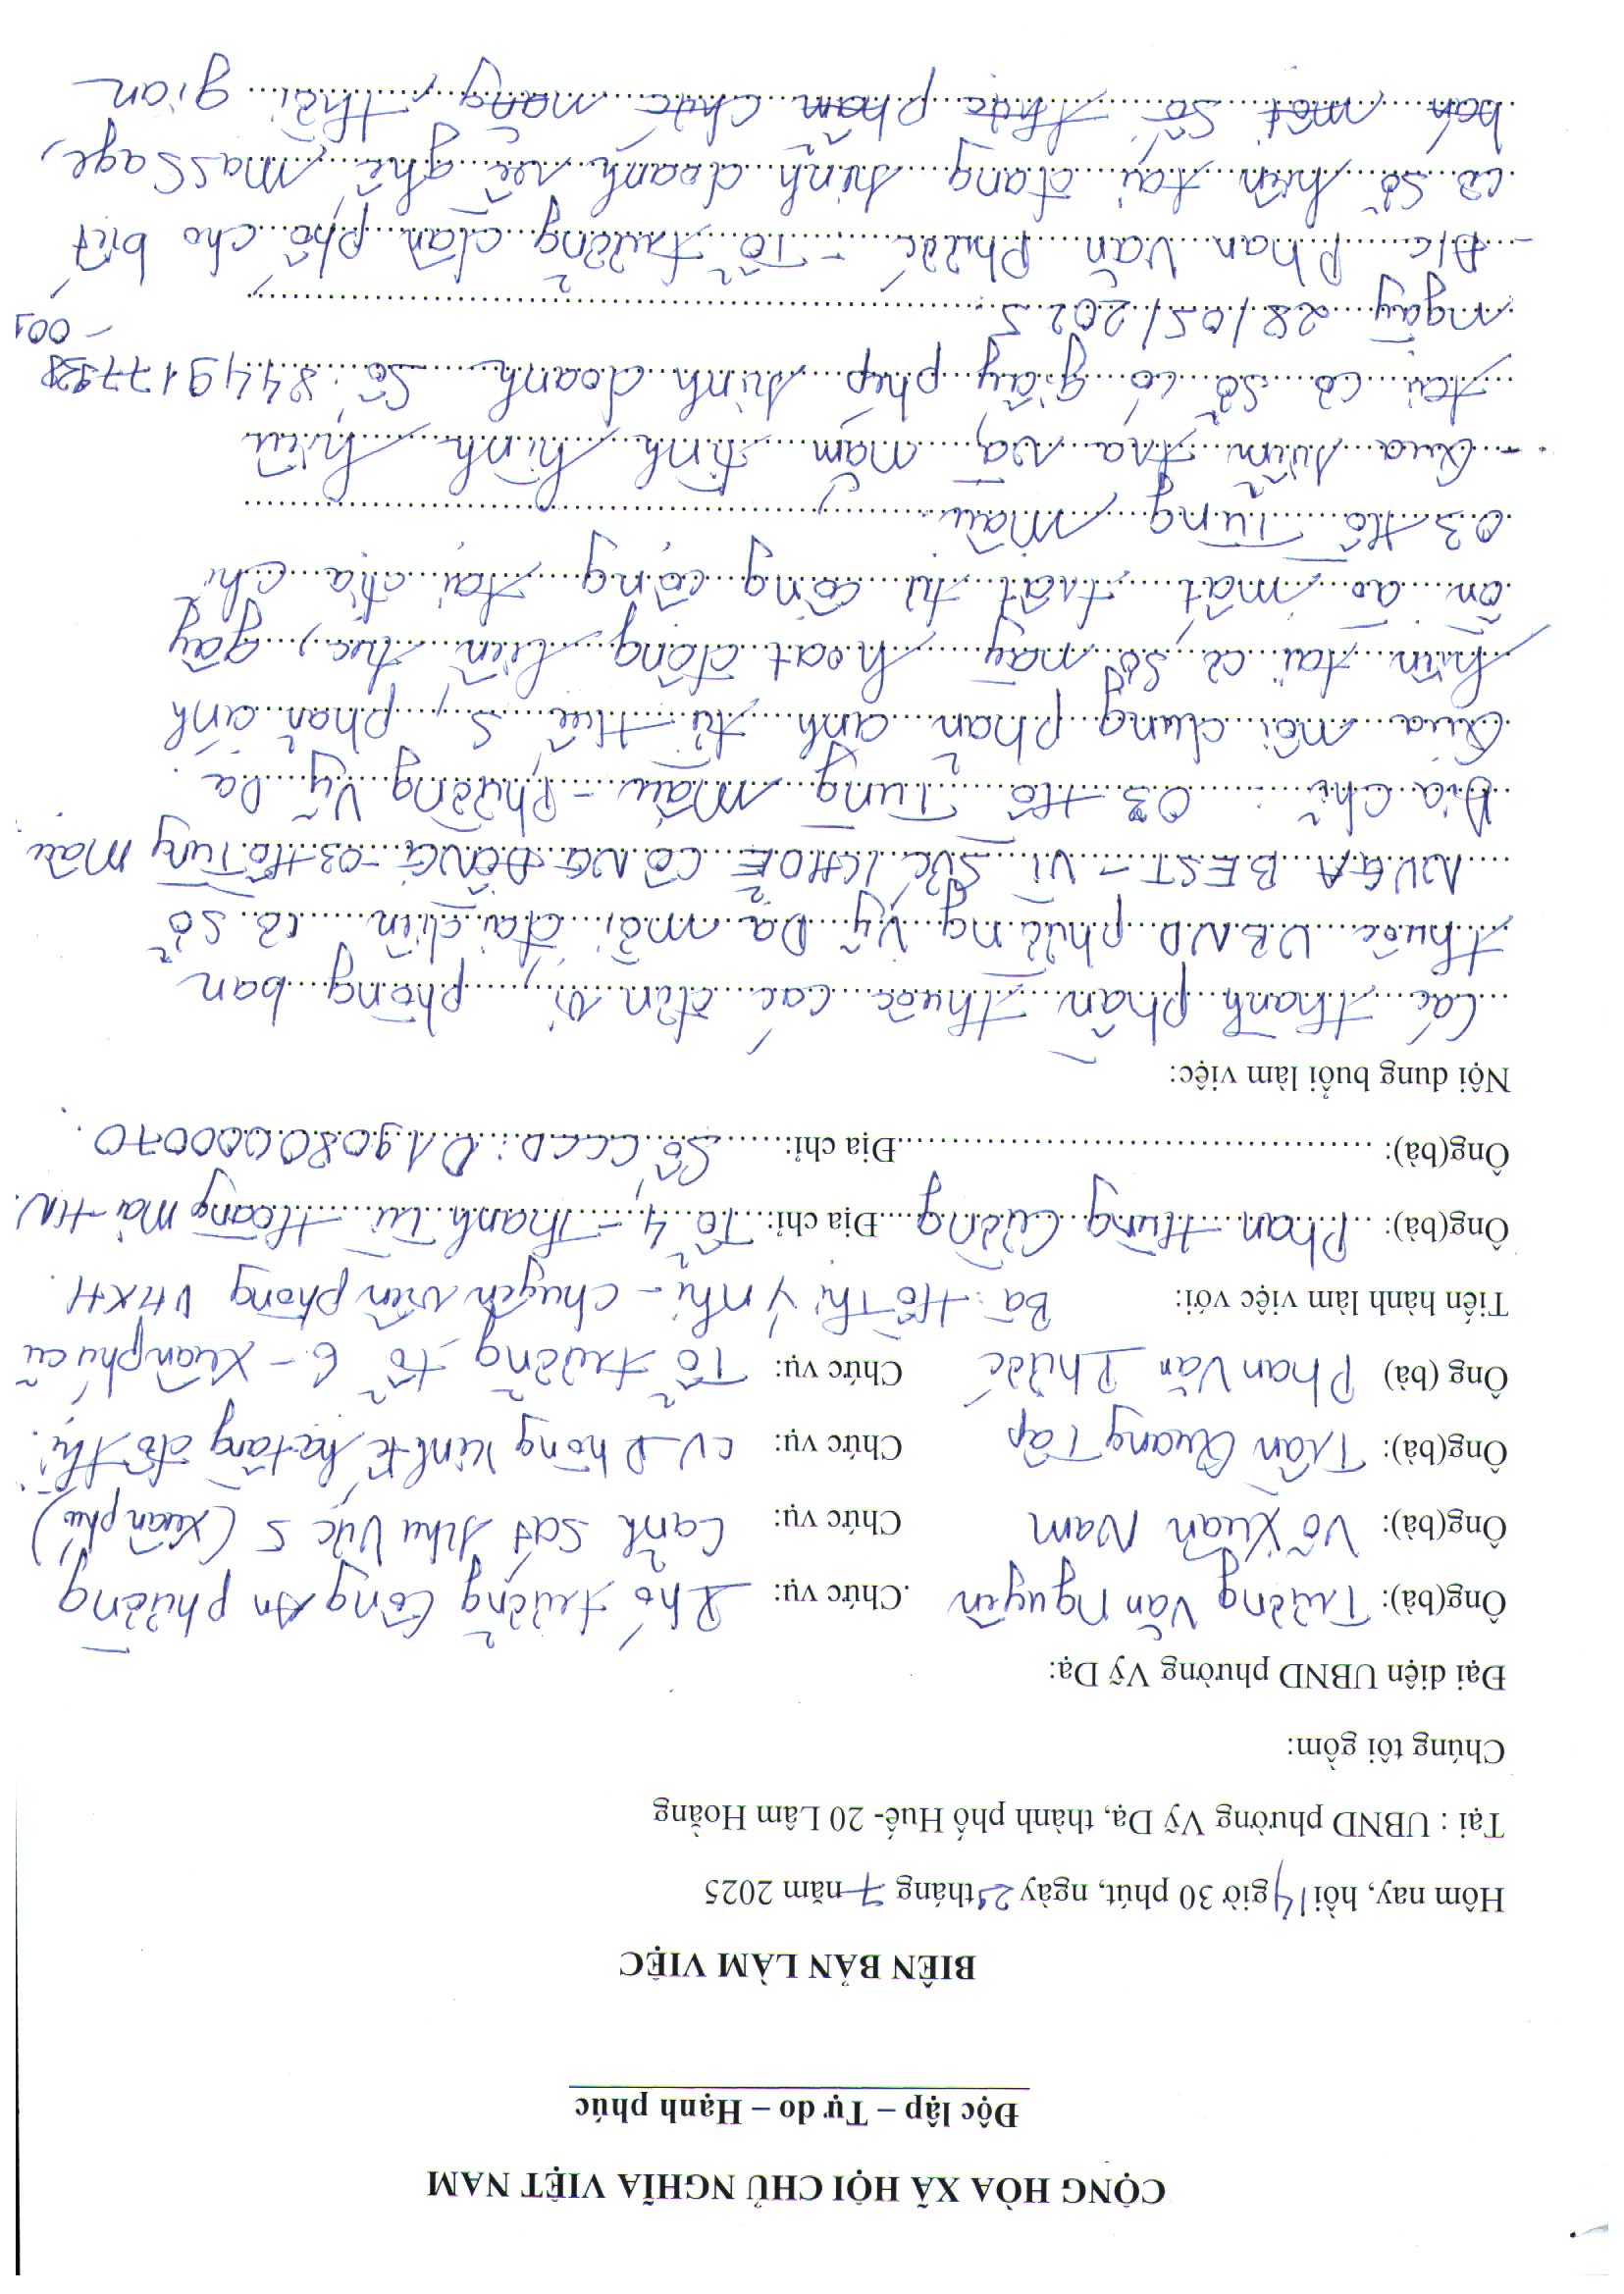 CỘNG HÒA XÃ HỘI CHỦ NGHĨA VIỆT NAM
Độc lập – Tự do – Hạnh phúc
BIÊN BẢN LÀM VIỆC
Hôm nay, hồi 14 giờ 30 phút, ngày 25 tháng 7 năm 2025
Tại : UBND phường Vỹ Dạ, thành phố Huế- 20 Lâm Hoằng
Chúng tôi gồm:
Đại diện UBND phường Vỹ Dạ:
Ông(bà): Trương Văn Nguyên Chức vụ: Phó trưởng Công An phường
Ông(bà): Võ Xuân Nam Chức vụ: Cảnh sát khu vực 5 (Xuân phú)
Ông(bà): Trần Quang Tập Chức vụ: CV Phòng kinh tế hạ tầng đô thị.
Ông (bà) Phan Văn Phước Chức vụ: Tổ trưởng tổ 6 - Xuân phú cũ
Tiến hành làm việc với: Bà: Hồ Thị Ý Nhi - Chuyên viên phòng VHXH.
Ông(bà): Phan Hùng Cường Địa chỉ: Tổ 4 - Thanh Trì - Hoàng Mai - HN.
Ông(bà): Địa chỉ: Số CCCD: 019080000070.
Nội dung buổi làm việc:
Các thành phần thuộc các đơn vị, phòng ban
thuộc UBND phường Vỹ Dạ mời đại diện cơ sở
NUGA BEST - Vì SỨC KHOẺ CỘNG ĐỒNG - 03 Hồ Tùng Mậu
Địa chỉ: 03 Hồ Tùng Mậu - Phường Vỹ Dạ.
Qua nội dung phản ánh từ Huế S, phản ánh
hiện tại cơ sở này hoạt động liên tục, gây
ồn ào mất trật tự công cộng tại địa chỉ
03 Hồ Tùng Mậu.
- Qua kiểm tra và nắm tình hình hiện
tại cơ sở có giấy phép kinh doanh số: 8449177928
- 001
ngày 28/05/2025.
- Đ/c Phan Văn Phước - Tổ trưởng dân phố cho biết
cơ sở hiện tại đang kinh doanh về ghế massage,
bán một số thực phẩm chức năng, thời gian